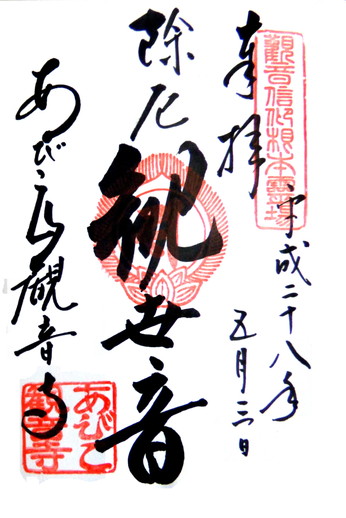 奉拝
觀音信仰根本霊場
平成二十八年
五月三日
除厄
観世音
あびこ山観音寺
あびこ
観音寺